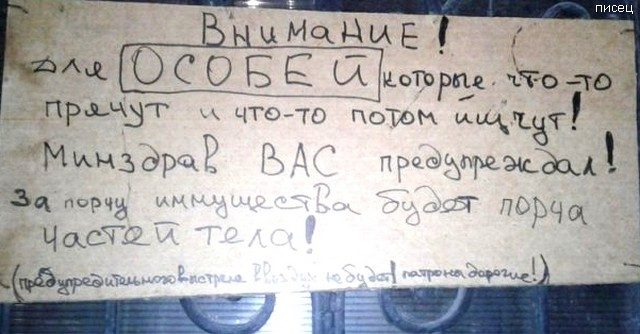 писец
Внимание!
для ОСОБЕЙ которые что-то
прячут и что-то потом ищчут!
Минздрав ВАС предупреждал!
За порчу иммущества будет порча
частей тела!
(предупредительного выстрела в воздух не будет! патроны дорогие!)